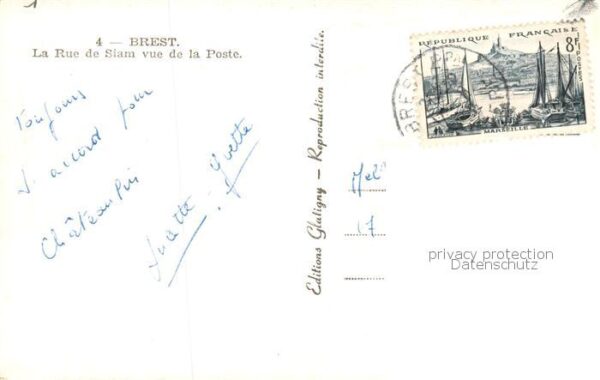 1
4 — BREST.
La Rue de Siam vue de la Poste.
Toujours
d'accord pour
Châteaulin
Lucette - Yvette
Editions Glatigny — Reproduction interdite.
RÉPUBLIQUE FRANÇAISE
8F
POSTES
MARSEILLE
BREST
17
privacy protection
Datenschutz